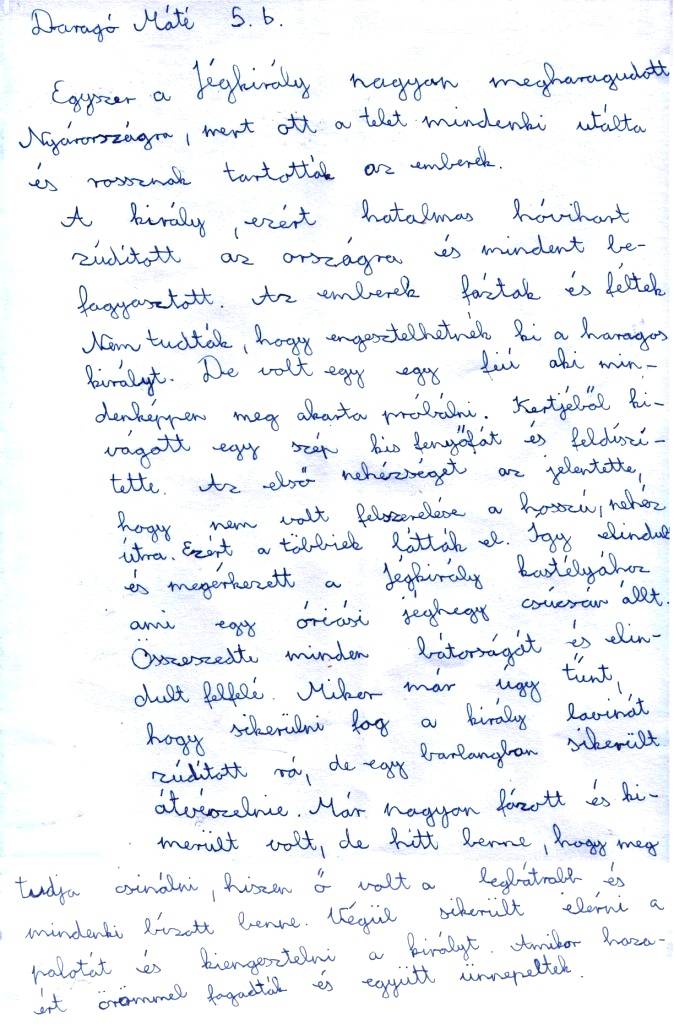 Daragó Máté 5. b.
Egyszer a Jégkirály nagyon megharagudott
Nyárországra, mert ott a telet mindenki utálta
és rossznak tartották az emberek.
A király, ezért hatalmas hóvihart
zúdított az országra és mindent be-
fagyasztott. Az emberek fáztak és féltek
Nem tudták, hogy engesztelhetnék ki a haragos
királyt. De volt egy egy fiú aki min-
denképpen meg akarta próbálni. Kertjéből ki-
vágott egy szép kis fenyőfát és feldíszí-
tette. Az első nehézséget az jelentette,
hogy nem volt felszerelése a hosszú, nehéz
útra. Ezért a többiek látták el. Így elindult
és megérkezett a Jégkirály kastélyához
ami egy óriási jéghegy csúcsán állt.
Összeszedte minden bátorságát és elin-
dult felfelé. Mikor már úgy tűnt,
hogy sikerülni fog a király lavinát
zúdított rá, de egy barlangban sikerült
átvészelnie. Már nagyon fázott és ki-
merült volt, de hitt benne, hogy meg
tudja csinálni, hiszen ő volt a legbátrabb és
mindenki bízott benne. Végül sikerült elérni a
palotát és kiengesztelni a királyt. Amikor haza-
ért örömmel fogadták és együtt ünnepeltek.